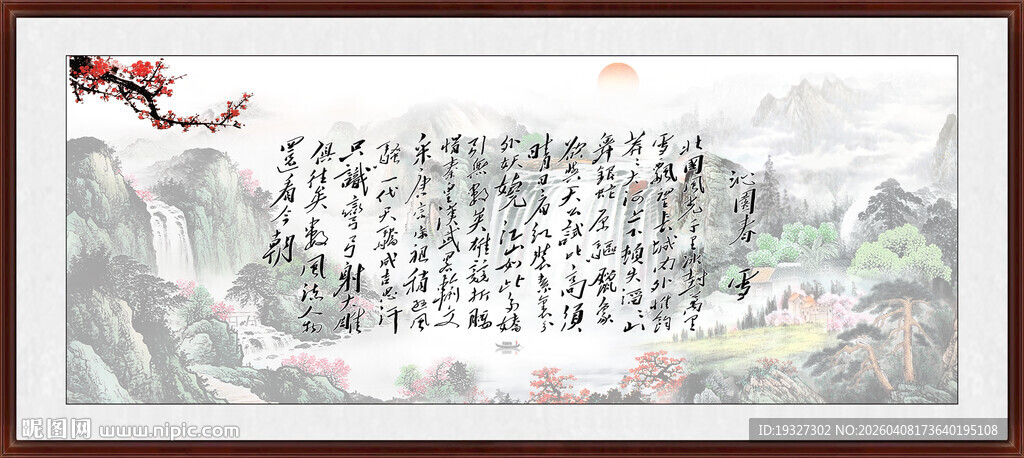 沁園春 雪
北國風光千里冰封萬里
雪飄望長城內外惟餘
莽〻大河上下頓失滔〻山
舞銀蛇原驅臘象
欲與天公試比高須
晴日看紅裝素裹分
外妖嬈江山如此多嬌
引無數英雄競折腰
惜秦皇漢武略輸文
采唐宗宋祖稍遜風
騷一代天驕成吉思汗
只識彎弓射大雕
俱往矣數風流人物
還看今朝
昵图网 www.nipic.com
ID:19327302 NO:20260408173640195108